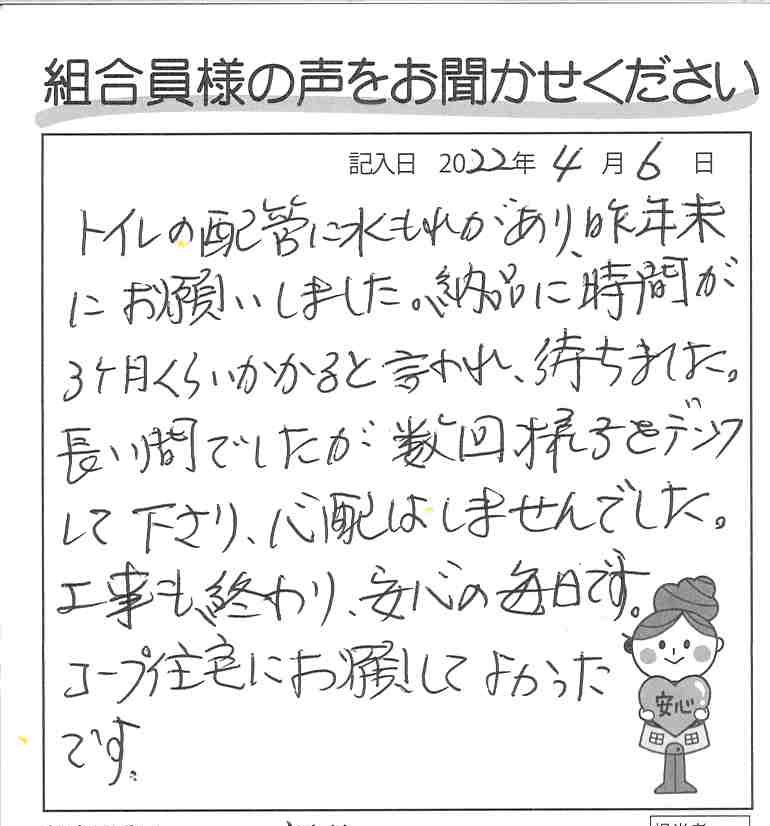 組合員様の声をお聞かせください
記入日 2022年 4月 6日
トイレの配管に水もれがあり、昨年末
にお願いしました。納品に時間が
3ケ月くらいかかると言われ、待ちました。
長い間でしたが数回様子をデンワ
して下さり、心配はしませんでした。
工事も終わり、安心の毎日です。
コープ住宅にお願してよかった
です。
安心